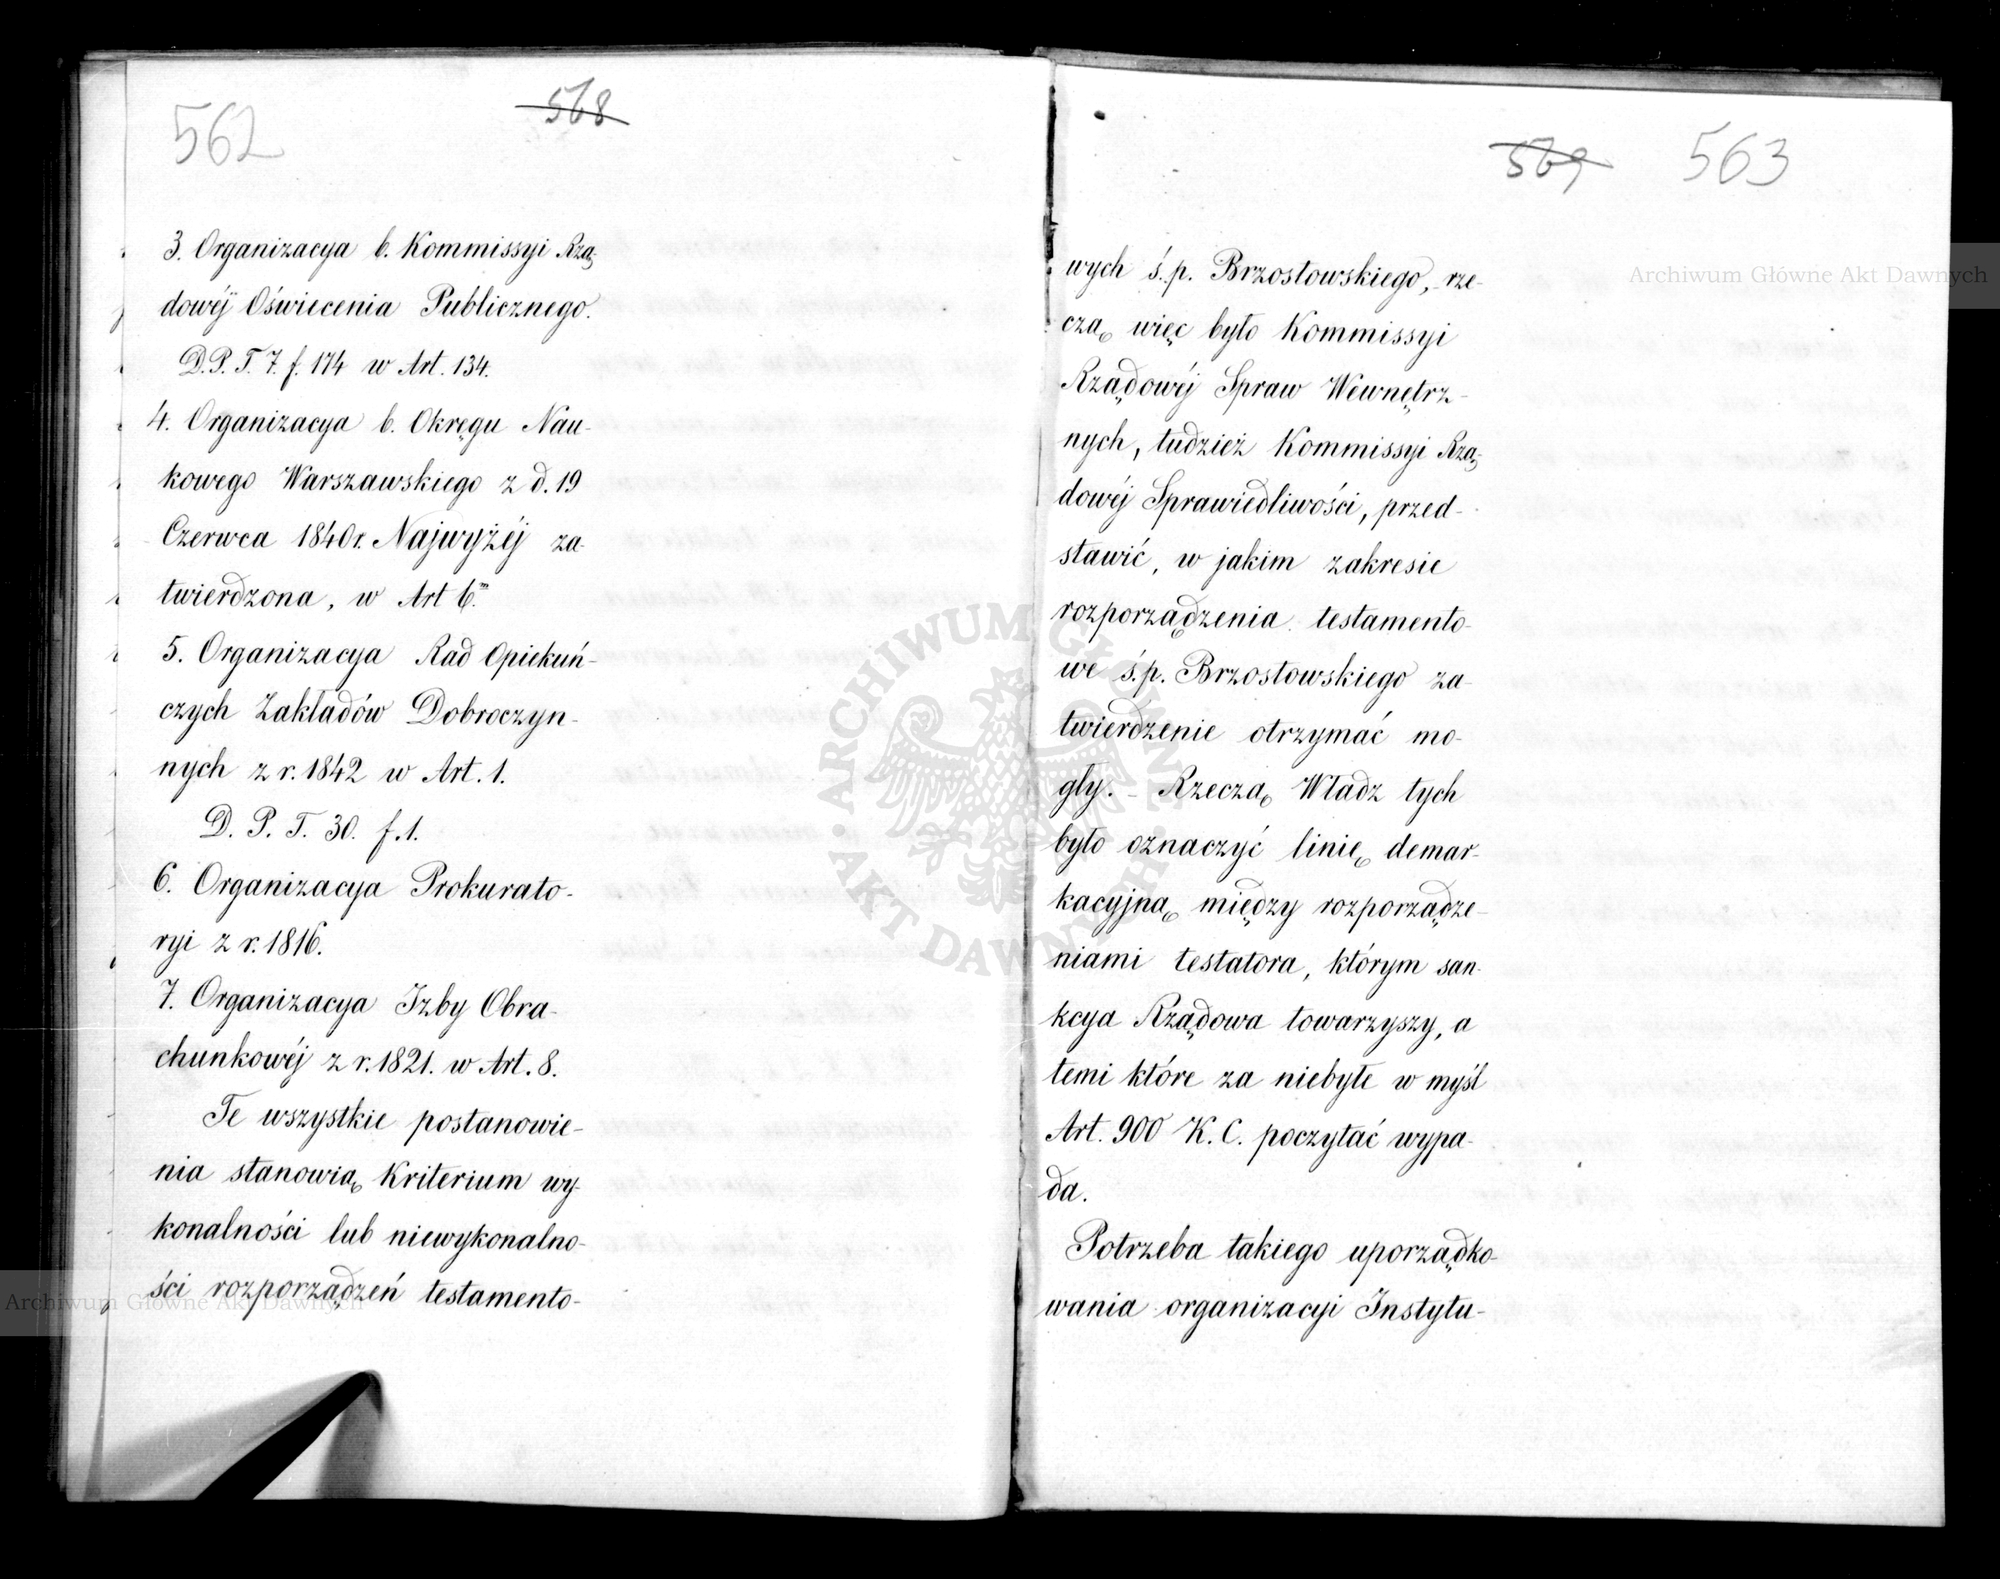 562
568
3. Organizacya b. Kommissyi Rzą-
dowéj Oświecenia Publicznego.
D. P. T. 7. f. 174 w Art. 134.
4. Organizacya b. Okręgu Nau-
kowego Warszawskiego z d. 19
Czerwca 1840 r. Najwyżéj za-
twierdzona, w Art 6.m
5. Organizacya Rad Opiekuń-
czych Zakładów Dobroczyn-
nych z r. 1842 w Art. 1.
D. P. T. 30. f. 1.
6. Organizacya Prokurato-
ryi z r. 1816.
7. Organizacya Izby Obra-
chunkowéj z r. 1821. w Art. 8.
Te wszystkie postanowie-
nia stanowią Kriterium wy-
konalności lub niewykonalno-
ści rozporządzeń testamento-
569
563
wych ś. p. Brzostowskiego, rze-
czą więc było Kommissyi
Rządowéj Spraw Wewnętrz-
nych, tudzież Kommissyi Rzą-
dowéj Sprawiedliwości, przed-
stawić, w jakim zakresie
rozporządzenia testamento-
we ś. p. Brzostowskiego za-
twierdzenie otrzymać mo-
gły. – Rzeczą Władz tych
było oznaczyć linię demar-
kacyjną między rozporządze-
niami testatora, którym san-
kcya Rządowa towarzyszy, a
temi które za niebyłe w myśl
Art. 900 K. C. poczytać wypa-
da.
Potrzeba takiego uporządko-
wania organizacyi Instytu-
Archiwum Główne Akt Dawnych
Archiwum Główne Akt Dawnych
ARCHIWUM GŁÓWNE AKT DAWNYCH